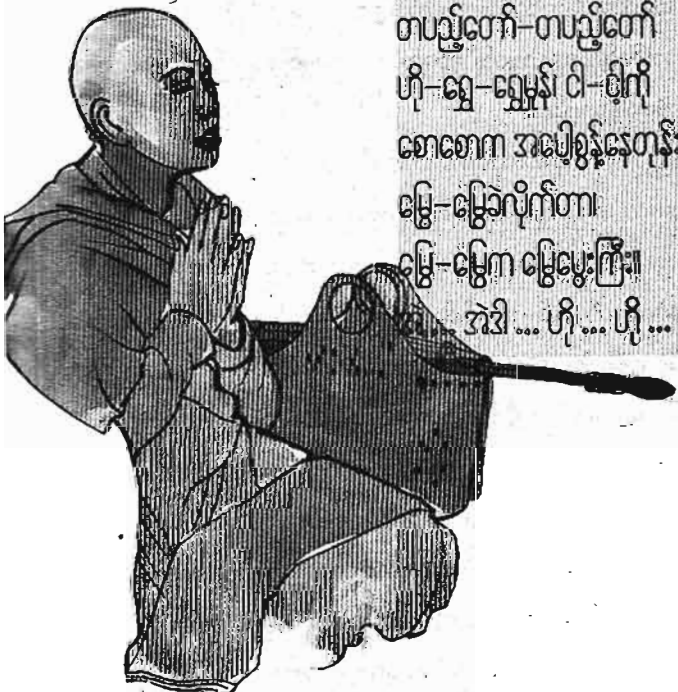 တပည့်တော်–တပည့်တော်
ဟို–ရွှေ–ရွှေမှုန်၊ ငါ–ငါ့ကို
စောစောက အပေါ့စွန့်နေတုန်း
မြွေ–မြွေခဲလိုက်တာ၊
မြွေ–မြွေက မြွေပွေးကြီး။
... အဲဒါ ... ဟို ... ဟို ...